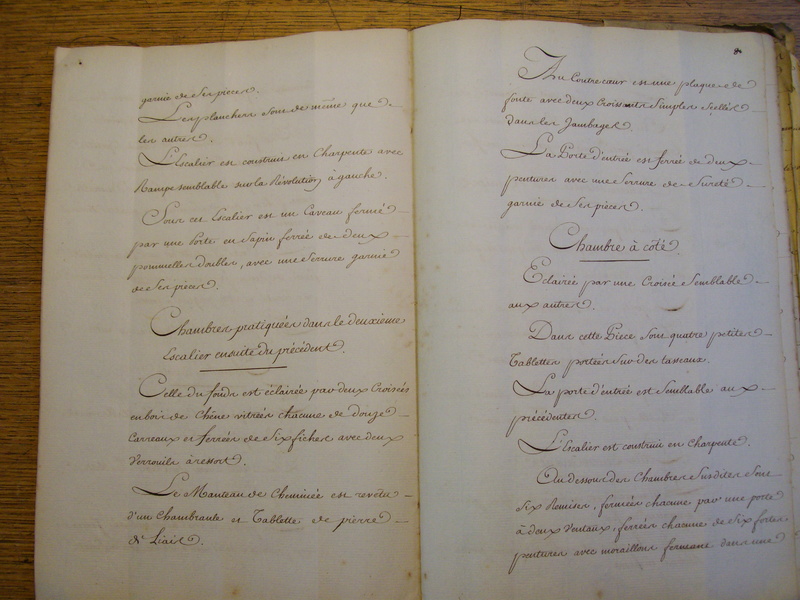 garnie de ses pieces.
Les planchers sont de même que
les autres.
L'Escalier est construit en Charpente avec
Rampe semblable sur la Révolution à gauche.
Sous cet Escalier est un Caveau fermé
par une Porte en Sapin ferrée de deux
pommelles doubles, avec une Serrure garnie
de Ses pieces.
Chambres pratiquées dans le deuxieme
Escalier ensuite du précédent.
Celle du fonds est éclairée par deux Croisées
en bois de Chêne vitrées chacune de douze
Carreaux et ferrées de Six fiches avec deux
Verrouils à ressort.
Le Manteau de Cheminée est revetu
d'un Chambranle et Tablette de pierre
de Liais.
8
Au Contrecœur est une plaque de
fonte avec deux Croissants Simples Scellés
dans les Jambages.
La Porte d'entrée est ferrée de deux
pentures avec une Serrure de Sureté
garnie de Ses pieces.
Chambre à coté.
Eclairée par une Croisée Semblable
aux autres.
Dans cette Piece sont quatre petites
Tablettes portées Sur des tasseaux.
La porte d'entrée est Semblable aux
précédentes.
L'Escalier est construit en Charpente.
Au dessous des Chambres Susdites Sont
Six Remises, fermées chacune par une porte
à deux Ventaux, ferrées chacune de Six fortes
pentures avec moraillons fermant dans une